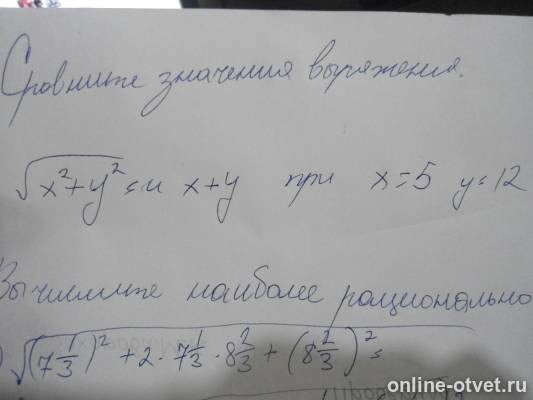 Сравните значения выряжения.
√(x²+y²) и x+y при x=5 y=12
Вычислите наиболее рационально
√((7 1/3)² + 2 · 7 1/3 · 8 2/3 + (8 2/3)²) =
online-otvet.ru